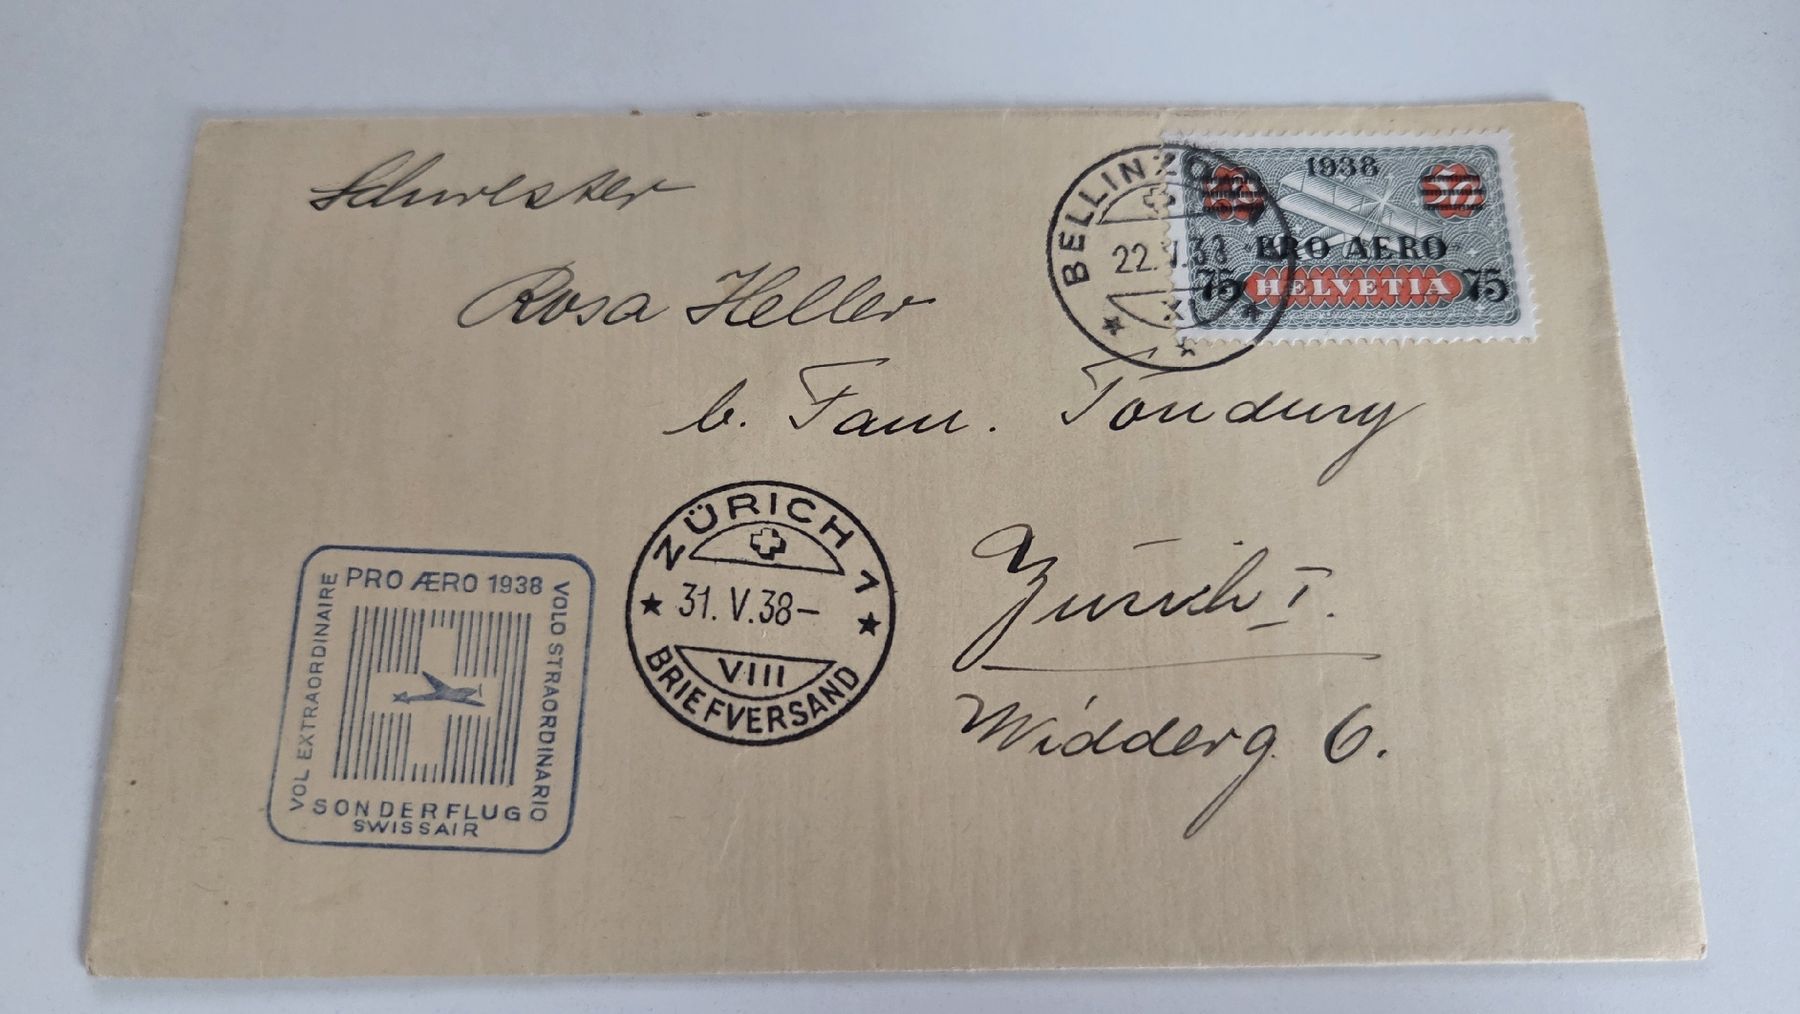 Schwester
Rosa Heller
b. Fam. Tondury
Zürich I.
Widderg. 6.
BELLINZO
22.V.38
XI
1938
PRO AERO
75 HELVETIA 75
ZÜRICH 1
31.V.38–
VIII
BRIEFVERSAND
PRO ÆRO 1938
VOL EXTRAORDINAIRE
VOLO STRAORDINARIO
SONDERFLUG
SWISSAIR